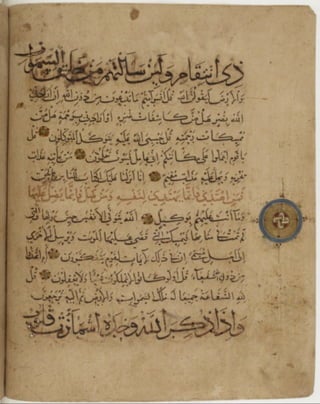 ذي انتقام ولئن سألتهم من خلق السموات
والأرض ليقولن الله قل أفرأيتم ما تدعون من دون الله إن أرادني
الله بضر هل هن كاشفات ضره أو أرادني برحمة هل هن
ممسكات رحمته قل حسبي الله عليه يتوكل المتوكلون قل
يا قوم اعملوا على مكانتكم إني عامل فسوف تعلمون من يأتيه عذاب
يخزيه ويحل عليه عذاب مقيم إنا أنزلنا عليك الكتاب للناس بالحق
فمن اهتدى فإنما يهتدي لنفسه ومن ضل فإنما يضل عليها
وما أنت عليهم بوكيل الله يتوفى الأنفس حين موتها والتي
لم تمت في منامها فيمسك التي قضى عليها الموت ويرسل الأخرى
إلى أجل مسمى إن في ذلك لآيات لقوم يتفكرون أم اتخذوا
من دون الله شفعاء قل أولو كانوا لا يملكون شيئا ولا يعقلون قل
لله الشفاعة جميعا له ملك السموات والأرض ثم إليه ترجعون
وإذا ذكر الله وحده اشمأزت قلوب